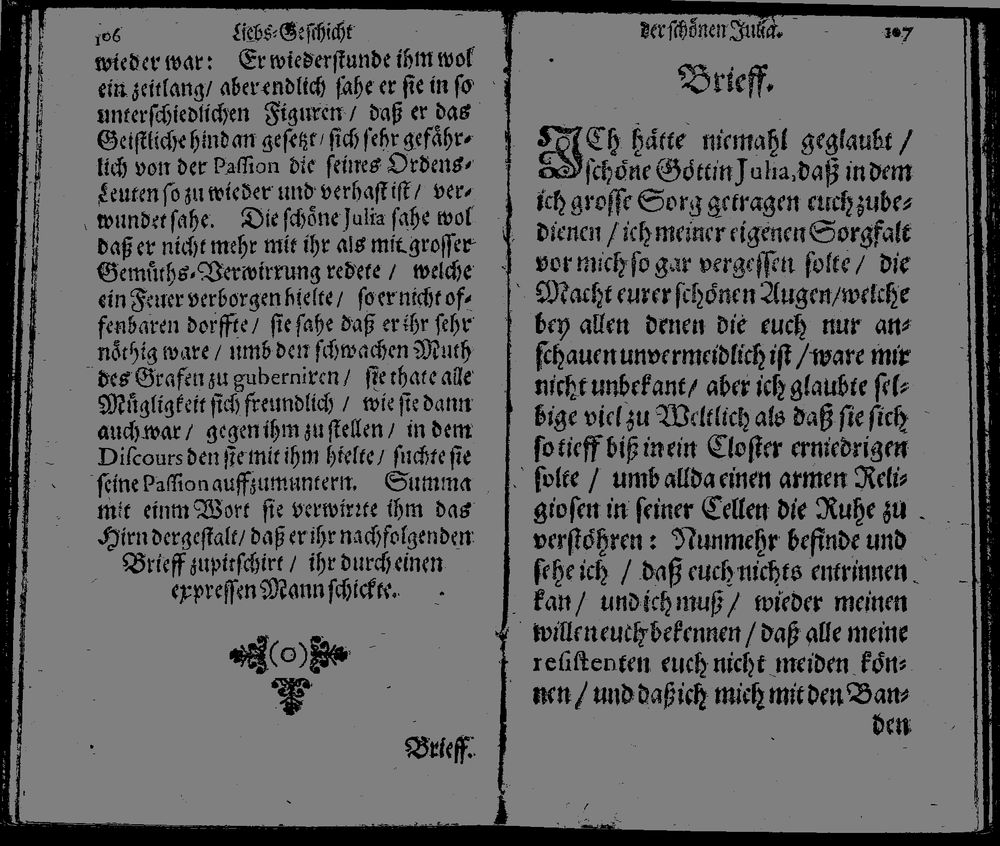 106 Liebs-Geschicht
wieder war: Er wiederstunde ihm wol
ein zeitlang/ aber endlich sahe er sie in so
unterschiedlichen Figuren / daß er das
Geistliche hindan gesetzt/ sich sehr gefähr-
lich von der Passion die seines Ordens-
Leuten so zu wieder und verhast ist / ver-
wundet sahe. Die schöne Julia sahe wol
daß er nicht mehr mit ihr als mit grosser
Gemüths-Verwirrung redete / welche
ein Feuer verborgen hielte / so er nicht of-
fenbaren dorffte / sie sahe daß er ihr sehr
nöthig ware / umb den schwachen Muth
des Grafen zu guberniren / sie thate alle
Mügligkeit sich freundlich / wie sie dann
auch war / gegen ihm zu stellen / in dem
Discours den sie mit ihm hielte / suchte sie
seine Passion auffzumuntern. Summa
mit einm Wort sie verwirrte ihm das
Hirn dergestalt / daß er ihr nachfolgenden
Brieff zupitschirt / ihr durch einen
expressen Mann schickte.
(O)
Brieff.
der schönen Julia. 107
Brieff.
ICh hätte niemahl geglaubt /
schöne Göttin Julia, daß in dem
ich grosse Sorg getragen euch zube-
dienen / ich meiner eigenen Sorgfalt
vor mich so gar vergessen solte / die
Macht eurer schönen Augen / welche
bey allen denen die euch nur an-
schauen unvermeidlich ist / ware mir
nicht unbekant / aber ich glaubte sel-
bige viel zu Weltlich als daß sie sich
so tieff biß in ein Closter erniedrigen
solte / umb allda einen armen Reli-
giosen in seiner Cellen die Ruhe zu
verstöhren: Nunmehr befinde und
sehe ich / daß euch nichts entrinnen
kan / und ich muß / wieder meinen
willen euch bekennen / daß alle meine
resistenten euch nicht meiden kön-
nen / und daß ich mich mit den Ban-
den